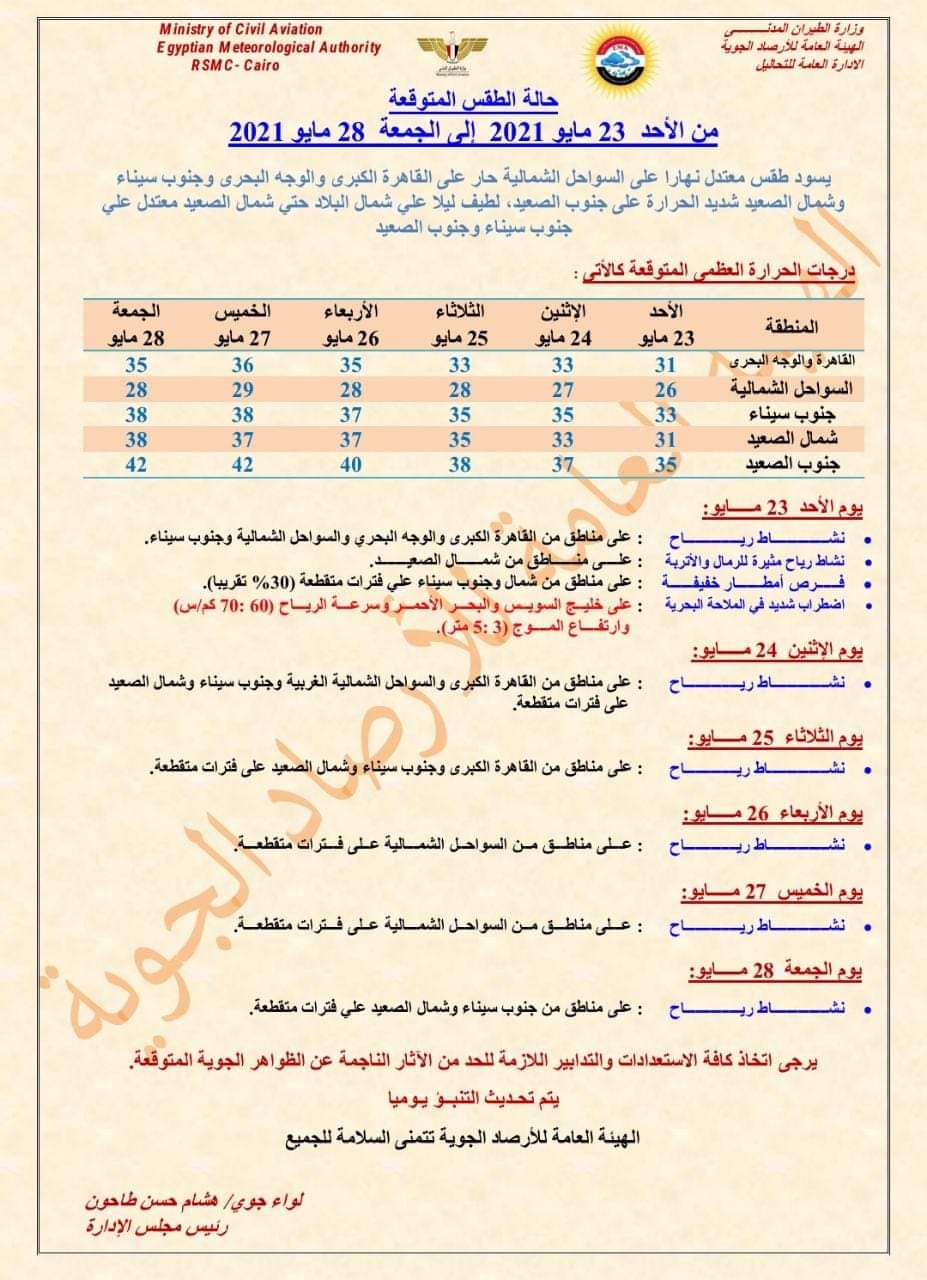 Ministry of Civil Aviation
Egyptian Meteorological Authority
RSMC- Cairo
وزارة الطيران المدنـــــي
الهيئة العامة للأرصاد الجوية
الادارة العامة للتحاليل
حالة الطقس المتوقعة
من الأحد 23 مايو 2021 إلى الجمعة 28 مايو 2021
يسود طقس معتدل نهارا على السواحل الشمالية حار على القاهرة الكبرى والوجه البحرى وجنوب سيناء
وشمال الصعيد شديد الحرارة على جنوب الصعيد، لطيف ليلا علي شمال البلاد حتي شمال الصعيد معتدل علي
جنوب سيناء وجنوب الصعيد
درجات الحرارة العظمى المتوقعة كالأتى :
المنطقة الأحد الإثنين الثلاثاء الأربعاء الخميس الجمعة
23 مايو 24 مايو 25 مايو 26 مايو 27 مايو 28 مايو
القاهرة والوجه البحرى 31 33 33 35 36 35
السواحل الشمالية 26 27 28 28 29 28
جنوب سيناء 33 35 35 37 38 38
شمال الصعيد 31 33 35 37 37 38
جنوب الصعيد 35 37 38 40 42 42
يوم الأحد 23 مــــايو:
• نشـــــــــاط ريـــــــــاح : على مناطق من القاهرة الكبرى والوجه البحري والسواحل الشمالية وجنوب سيناء.
• نشاط رياح مثيرة للرمال والأتربة : علـــى منـــاطق من شمـــال الصعيـــد.
• فـــرص أمطـــار خفيفـــة : على مناطق من شمال وجنوب سيناء علي فترات متقطعة (30% تقريبا).
• اضطراب شديد في الملاحة البحرية : على خليج السويس والبحر الأحمر وسرعة الرياح (60 :70 كم/س)
وارتفـاع المـوج (3 :5 متر).
يوم الإثنين 24 مــــايو:
• نشـــــــــاط ريـــــــــاح : على مناطق من القاهرة الكبرى والسواحل الشمالية الغربية وجنوب سيناء وشمال الصعيد
على فترات متقطعة.
يوم الثلاثاء 25 مــــايو:
• نشـــــــــاط ريـــــــــاح : على مناطق من القاهرة الكبرى وجنوب سيناء وشمال الصعيد على فترات متقطعة.
يوم الأربعاء 26 مــــايو:
• نشـــــــــاط ريـــــــــاح : علـى مناطـق مـن السواحـل الشمـالية علـى فـترات متقطعـة.
يوم الخميس 27 مــــايو:
• نشـــــــــاط ريـــــــــاح : علـى مناطـق مـن السواحـل الشمـالية علـى فـترات متقطعـة.
يوم الجمعة 28 مــــايو:
• نشـــــــــاط ريـــــــــاح : على مناطق من جنوب سيناء وشمال الصعيد علي فترات متقطعة.
يرجى اتخاذ كافة الاستعدادات والتدابير اللازمة للحد من الآثار الناجمة عن الظواهر الجوية المتوقعة.
يتم تحديث التنبـؤ يـوميا
الهيئة العامة للأرصاد الجوية تتمنى السلامة للجميع
لواء جوي/ هشام حسن طاحون
رئيس مجلس الإدارة
الهيئة العامة للأرصاد الجوية